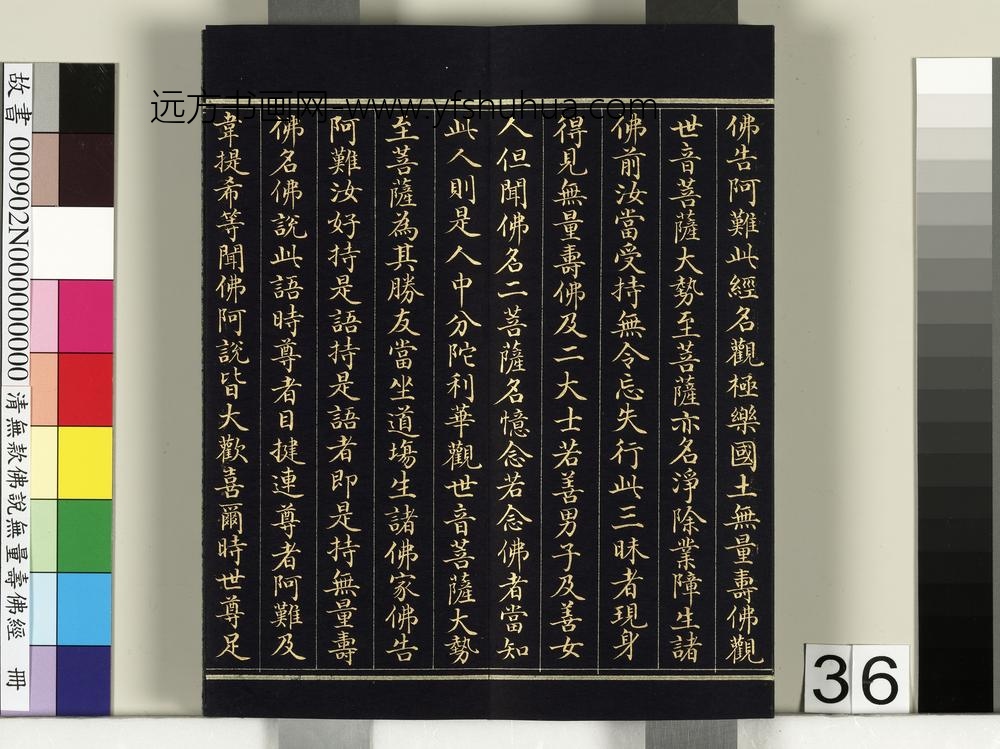 佛告阿難此經名觀極樂國土無量壽佛觀
世音菩薩大勢至菩薩亦名淨除業障生諸
佛前汝當受持無令忘失行此三昧者現身
得見無量壽佛及二大士若善男子及善女
人但聞佛名二菩薩名憶念若念佛者當知
此人則是人中分陀利華觀世音菩薩大勢
至菩薩為其勝友當坐道場生諸佛家佛告
阿難汝好持是語持是語者即是持無量壽
佛名佛說此語時尊者目揵連尊者阿難及
韋提希等聞佛阿說皆大歡喜爾時世尊足
远方书画网-www.yfshuhua.com
故書 000902N000000000 清無款佛說無量壽佛經 冊
36